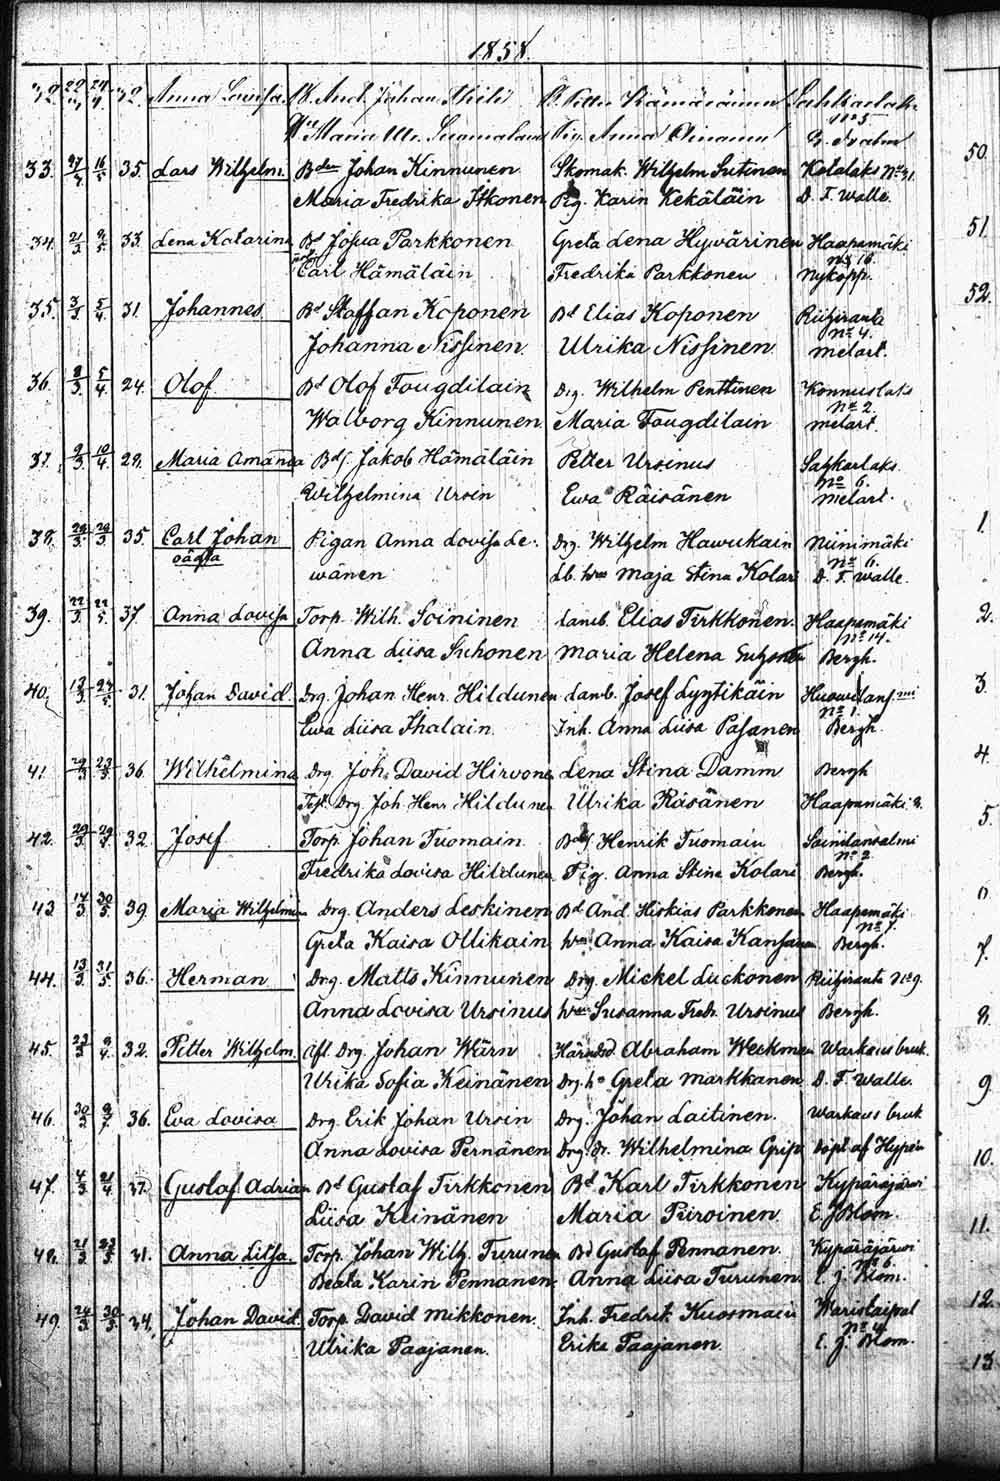 1858.
32. 32. Anna Lovisa. Johan
Maria Anna
33. 27/4 16/5 35. Lars Wilhelm. Bden Johan Kinnunen Skomak. Wilhelm Sutinen Kotalaks No 31.
Maria Fredrika Itkonen Pig. Karin Kekäläin D. F. Walle.
34. 21/3 9/5 33. Lena Katarina Bd Josua Parkkonen Greta Lena Hyvärinen Haapamäki
No 16.
Carl Hämäläin Fredrika Parkkonen Nykopp.
35. 3/3 5/4 31. Johannes Bd Staffan Koponen Bd Elias Koponen Riihiranta
No 4.
Johanna Nissinen. Ulrika Nissinen. Melart.
36. 2/3 5/4 24. Olof Bd Olof Fougdilain Drg. Wilhelm Penttinen Konnuslaks
No 2.
Walborg Kinnunen Maria Fougdilain Melart.
37. 9/3 10/4 28. Maria Amanda Bds. Jakob Hämäläin Petter Ursinus Sahkarlaks
No 6.
Wilhelmina Ursin Ewa Räisänen Melart.
38. 29/3 35. Carl Johan Pigan Anna Lovisa Le- Drg. Wilhelm Hawukain Niinimäki
oägta No 6.
wänen Maja Stina Kolari D. F. Walle.
39. 22/3 22/5 37. Anna Lovisa Torp. Wilh. Soininen Lamb. Elias Tirkkonen. Haapamäki
No 14.
Anna Liisa Suhonen Maria Helena Bergh.
40. 13/3 24/5 31. Johan David. Drg. Johan Henr. Hildunen Lamb. Josef Lyytikäin
No 1.
Ewa Liisa Ihalain. Inh. Anna Liisa Pasanen Bergh.
41. 23/5 36. Wilhelmina Drg. Joh. David Hirvone Lena Stina Damm Bergh
Drg. Joh. Henr. Hildunen Ulrika Räsänen Haapamäki 8.
42. 32. Josef Torp. Johan Tuomain Bds. Henrik Tuomain Soinilansalmi
No 2
Fredrika Lovisa Hildunen Pig. Anna Stina Kolari Bergh.
43 17/3 30/5 39 Maria Wilhelmina Drg. Anders Leskinen Bd And. Hiskias Parkkonen Haapamäki
No 7.
Greta Kaisa Ollikain hu Anna Kaisa Kansanen Bergh.
44. 13/3 31/5 36. Herman Drg. Matts Kinnunen Drg. Mickel Luckonen Riihiranta No 9.
Anna Lovisa Ursinus hu Susanna Fredr. Ursinus Bergh.
45. 23/3 9/4 32. Petter Wilhelm. Afl. Drg. Johan Wärn Abraham Weckman Warkaus bruk.
Ulrika Sofia Keinänen Drg. h. Greta Markkanen D. F. Walle.
46. 36. Eva Lovisa Drg. Erik Johan Ursin Drg. Johan Laitinen. Warkaus bruk
Anna Lovisa Pernänen Wilhelmina Grip Döpt af Hypén
47. 4/3 21/4 37. Gustaf Adrian Bd Gustaf Tirkkonen Bd Karl Tirkkonen Kypäräjärvi
Liisa Keinänen Maria Piiroinen E. J. Blom.
48. 21/3 23/5 31. Anna Liisa. Torp. Johan Wilh. Turunen Bd Gustaf Pennanen. Kypäräjärvi
No 6.
Beata Karin Pennanen. Anna Liisa Turunen E. J. Blom.
49. 24/3 30/5 34. Johan David. Torp. David Mikkonen. Inh. Fredrik Kuosmain Waristaipal
No 4.
Ulrika Paajanen. Erika Paajanen. E. J. Blom.
50.
51.
52.
1.
2.
3.
4.
5.
6
7.
8.
9
10.
11.
12.
13